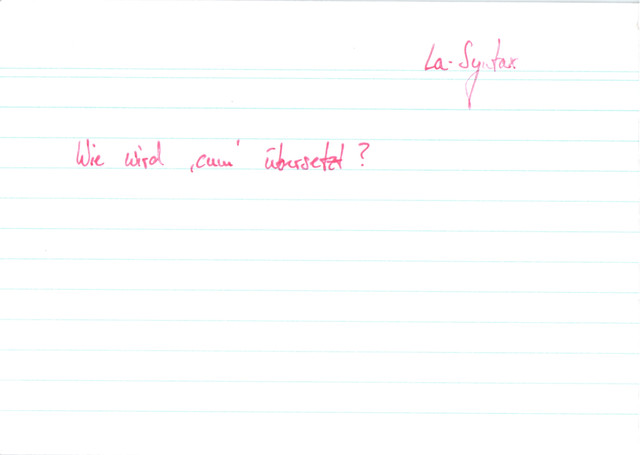 La-Syntax
Wie wird ‚cum' übersetzt?